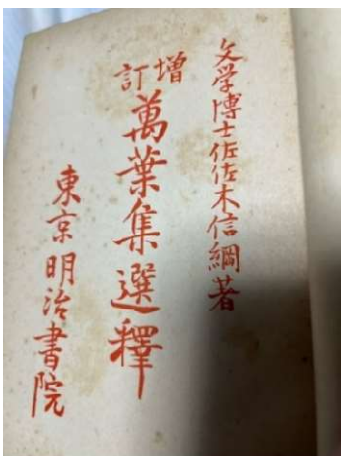 文学博士佐佐木信綱著
増訂
萬葉集選釋
東京明治書院